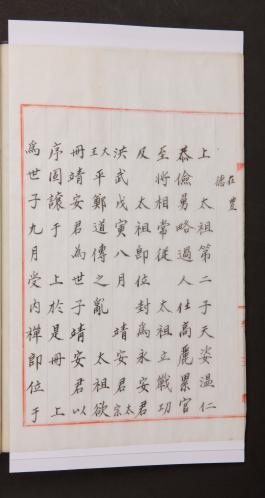 在豊
德
上 太祖第二子天姿温仁
恭儉勇略過人仕高麗累官
至將相常從 太祖立戰功
及 太祖即位封為永安君
洪武戊寅八月 靖安君太宗
大王平鄭道傳之亂 太祖欲
冊靖安君為世子靖安君以
序固讓于 上於是冊 上
為世子九月受內禅即位于